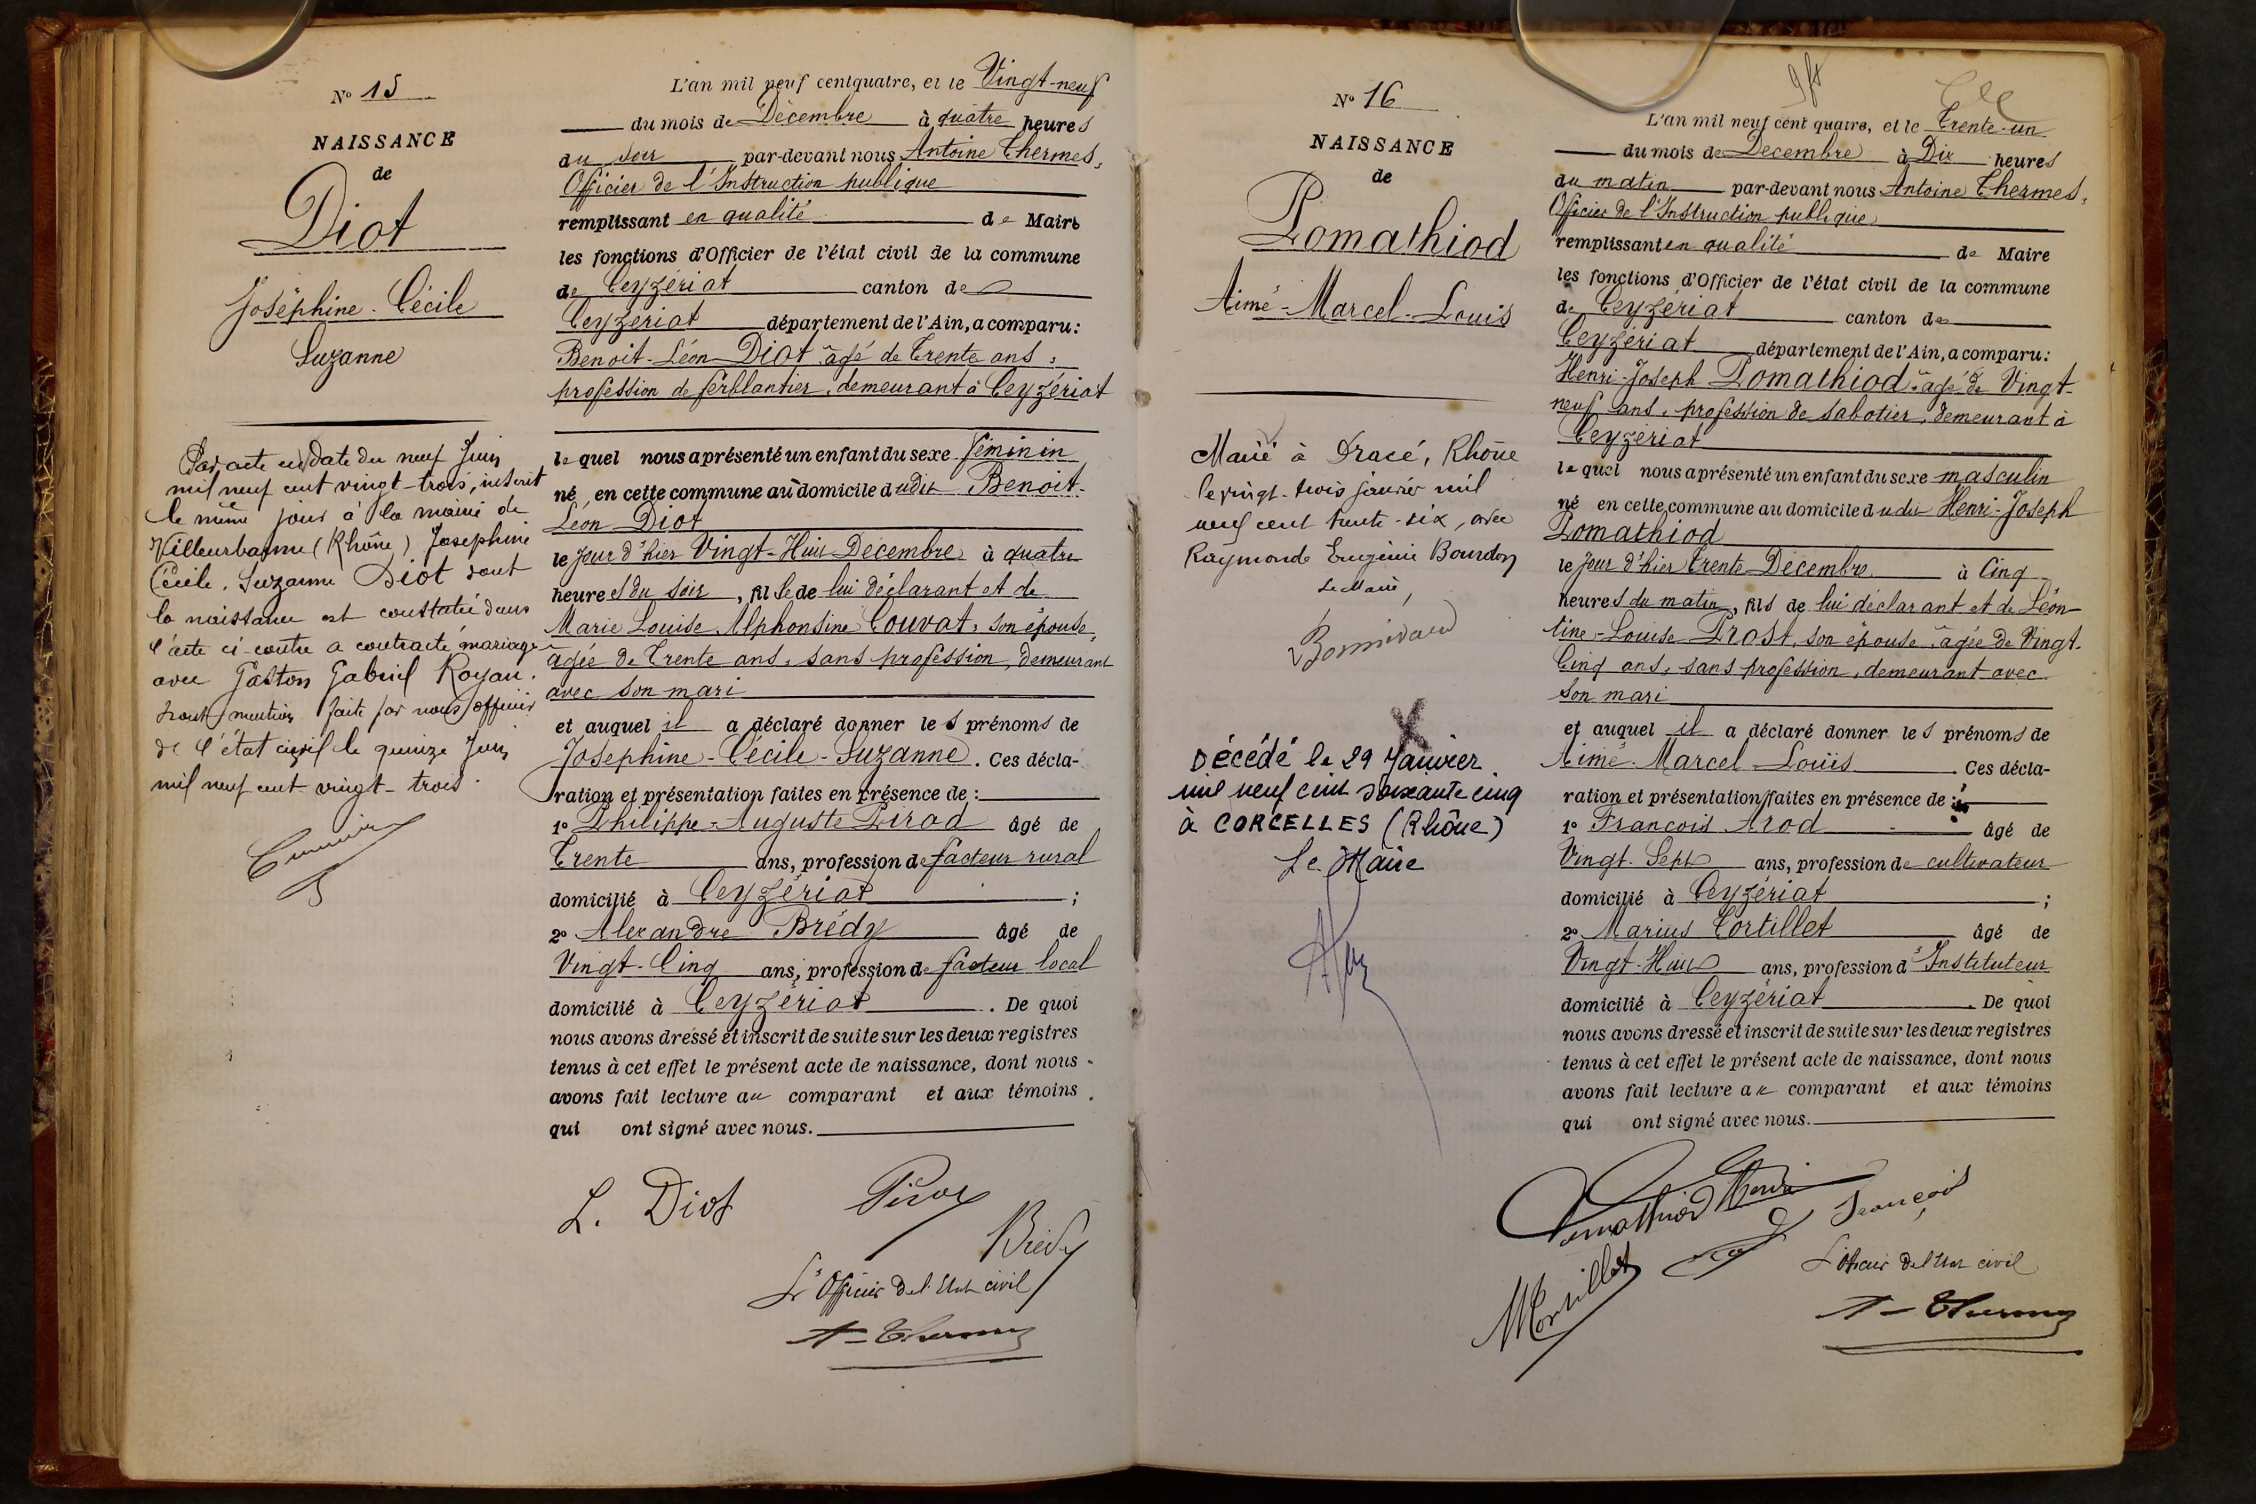 N° 15
NAISSANCE
de
Diot
Joséphine - Cécile
Suzanne
Par acte en date du neuf Juin
mil neuf cent vingt-trois, inscrit
le même jour à la mairie de
Villeurbanne (Rhône) Joséphine
Cécile, Suzanne Diot dont
la naissance est constatée dans
l'acte ci-contre a contracté mariage
avec Gaston Gabriel Royan.
Dont mention faite par nous officier
de l'état civil le quinze Juin
mil neuf cent vingt-trois.
L'an mil neuf cent quatre, et le Vingt-neuf
du mois de Décembre à quatre heures
du soir par-devant nous Antoine Thermes,
Officier de l'Instruction publique
remplissant en qualité de Maire
les fonctions d'Officier de l'état civil de la commune
de Ceyzériat canton de
Ceyzériat département de l'Ain, a comparu:
Benoit-Léon Diot âgé de Trente ans,
profession de ferblantier, demeurant à Ceyzériat
le quel nous a présenté un enfant du sexe féminin
né en cette commune au domicile dudit Benoit-
Léon Diot
le jour d'hier Vingt-Huit Décembre à quatre
heures du soir, fille de lui déclarant et de
Marie Louise Alphonsine Couvat, son épouse,
âgée de Trente ans, sans profession, demeurant
avec son mari
et auquel il a déclaré donner les prénoms de
Joséphine-Cécile-Suzanne. Ces décla-
ration et présentation faites en présence de:
1° Philippe-Auguste Pirod âgé de
Trente ans, profession de facteur rural
domicilié à Ceyzériat ;
2° Alexandre Brédy âgé de
Vingt-Cinq ans, profession de facteur local
domicilié à Ceyzériat. De quoi
nous avons dressé et inscrit de suite sur les deux registres
tenus à cet effet le présent acte de naissance, dont nous
avons fait lecture au comparant et aux témoins
qui ont signé avec nous.
L. Diot
Pirod
Brédy
L'Officier de l'Etat civil
A. Thermes
N° 16
NAISSANCE
de
Pomathiod
Aimé-Marcel-Louis
Marié à Dracé, Rhône
le vingt-trois janvier mil
neuf cent trente-six, avec
Raymonde Eugénie Bourdon
Le Maire,
X
Décédé le 29 Janvier
mil neuf cent soixante cinq
à CORCELLES (Rhône)
Le Maire
L'an mil neuf cent quatre, et le Trente-un
du mois de Décembre à Dix heures
du matin par-devant nous Antoine Thermes,
Officier de l'Instruction publique
remplissant en qualité de Maire
les fonctions d'Officier de l'état civil de la commune
de Ceyzériat canton de
Ceyzériat département de l'Ain, a comparu:
Henri-Joseph Pomathiod, âgé de Vingt-
neuf ans, profession de sabotier, demeurant à
Ceyzériat
le quel nous a présenté un enfant du sexe masculin
né en cette commune au domicile dudit Henri-Joseph
Pomathiod
le jour d'hier Trente Décembre à Cinq
heures du matin, fils de lui déclarant et de Léon-
tine-Louise Prost, son épouse, âgée de Vingt-
Cinq ans, sans profession, demeurant avec
son mari
et auquel il a déclaré donner les prénoms de
Aimé-Marcel-Louis. Ces décla-
ration et présentation faites en présence de:
1° François Arod âgé de
Vingt-Sept ans, profession de cultivateur
domicilié à Ceyzériat ;
2° Marius Cortillet âgé de
Vingt-Huit ans, profession d'Instituteur
domicilié à Ceyzériat. De quoi
nous avons dressé et inscrit de suite sur les deux registres
tenus à cet effet le présent acte de naissance, dont nous
avons fait lecture au comparant et aux témoins
qui ont signé avec nous.
Pomathiod Henri
François
L'Officier de l'Etat civil
A. Thermes